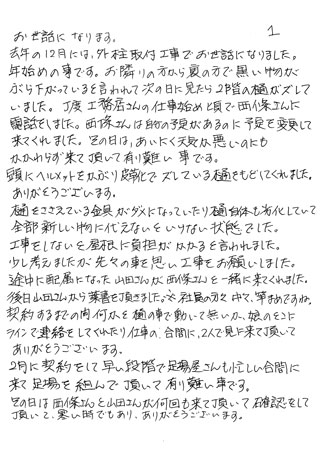 1
お世話になります。
去年の12月には、外柱取付工事でお世話になりました。
年始めの事です。お隣りの方から裏の方で黒い物が
ぶら下がっていると言われて次の日に見たら2階の樋がズレて
いました。丁度工務店さんの仕事始めと頃で西條さんに
電話をしました。西條さんは自分の予定があるのに予定を変更して
来てくれました。その日は、あいにく天気が悪いのにも
かかわらず来て頂いて有り難い事です。
頭にヘルメットをかぶり皮靴でズレている樋をもどしてくれました。
ありがとうございます。
樋をささえている金具がダメになっていたり樋自体も劣化していて
全部新しい物に代えないといけない状態でした。
工事をしないと屋根に負担がかかると言われました。
少し考えましたが先々の事を思い工事をお願いしました。
途中に配属になった山田さんが西條さんと一緒に来てくれました。
後日山田さんから葉書を頂きました。社員の方々中で、筆まめですね。
契約するまでの間何かと樋の事で動いて無いか、娘のそこに
ラインで連絡をしてくれたり仕事の合間に、2人で見に来て頂いて
ありがとうございます。
2月に契約をして早い段階で足場屋さんも忙しい合間に
来て足場を組んで頂いて有り難い事です。
その日は西條さんと山田さんが何回も来て頂いて確認をして
頂いて、寒い時でもあり、ありがとうございます。